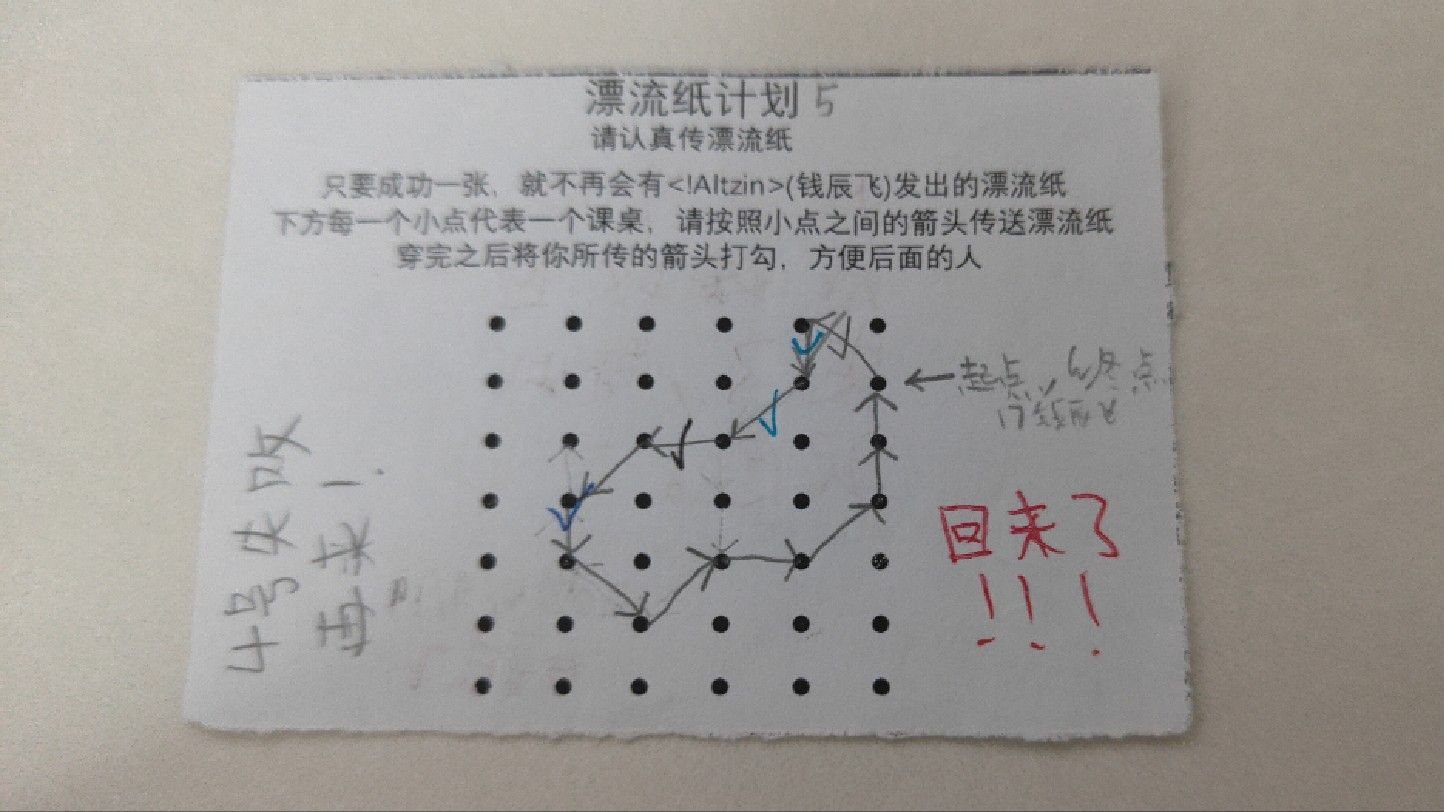 漂流纸计划 5
请认真传漂流纸
只要成功一张，就不再会有<!Altzin>(钱辰飞)发出的漂流纸
下方每一个小点代表一个课桌，请按照小点之间的箭头传送漂流纸
穿完之后将你所传的箭头打勾，方便后面的人
起点、终点
4号失败
再来!
回来了
!!!